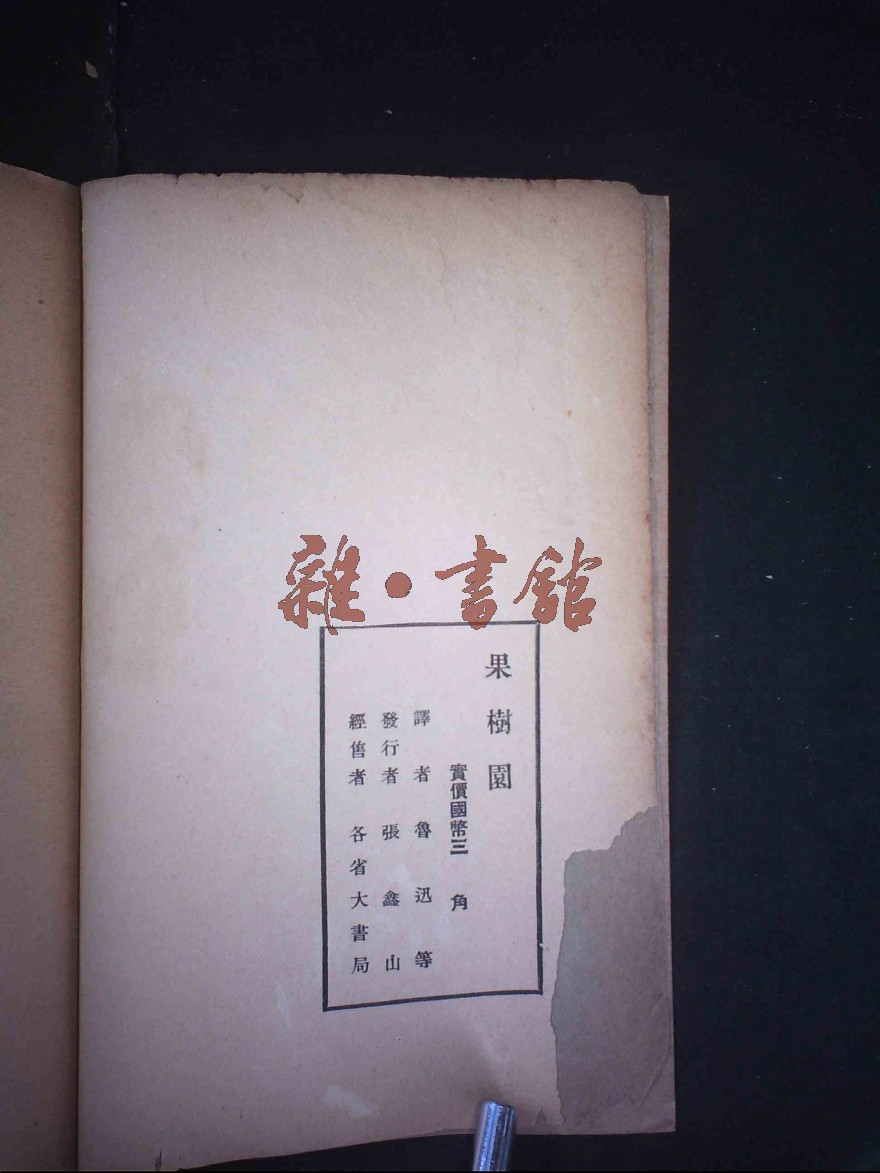 雜·書館
果樹園
實價國幣三角
譯者魯迅等
發行者張鑫山
經售者各省大書局